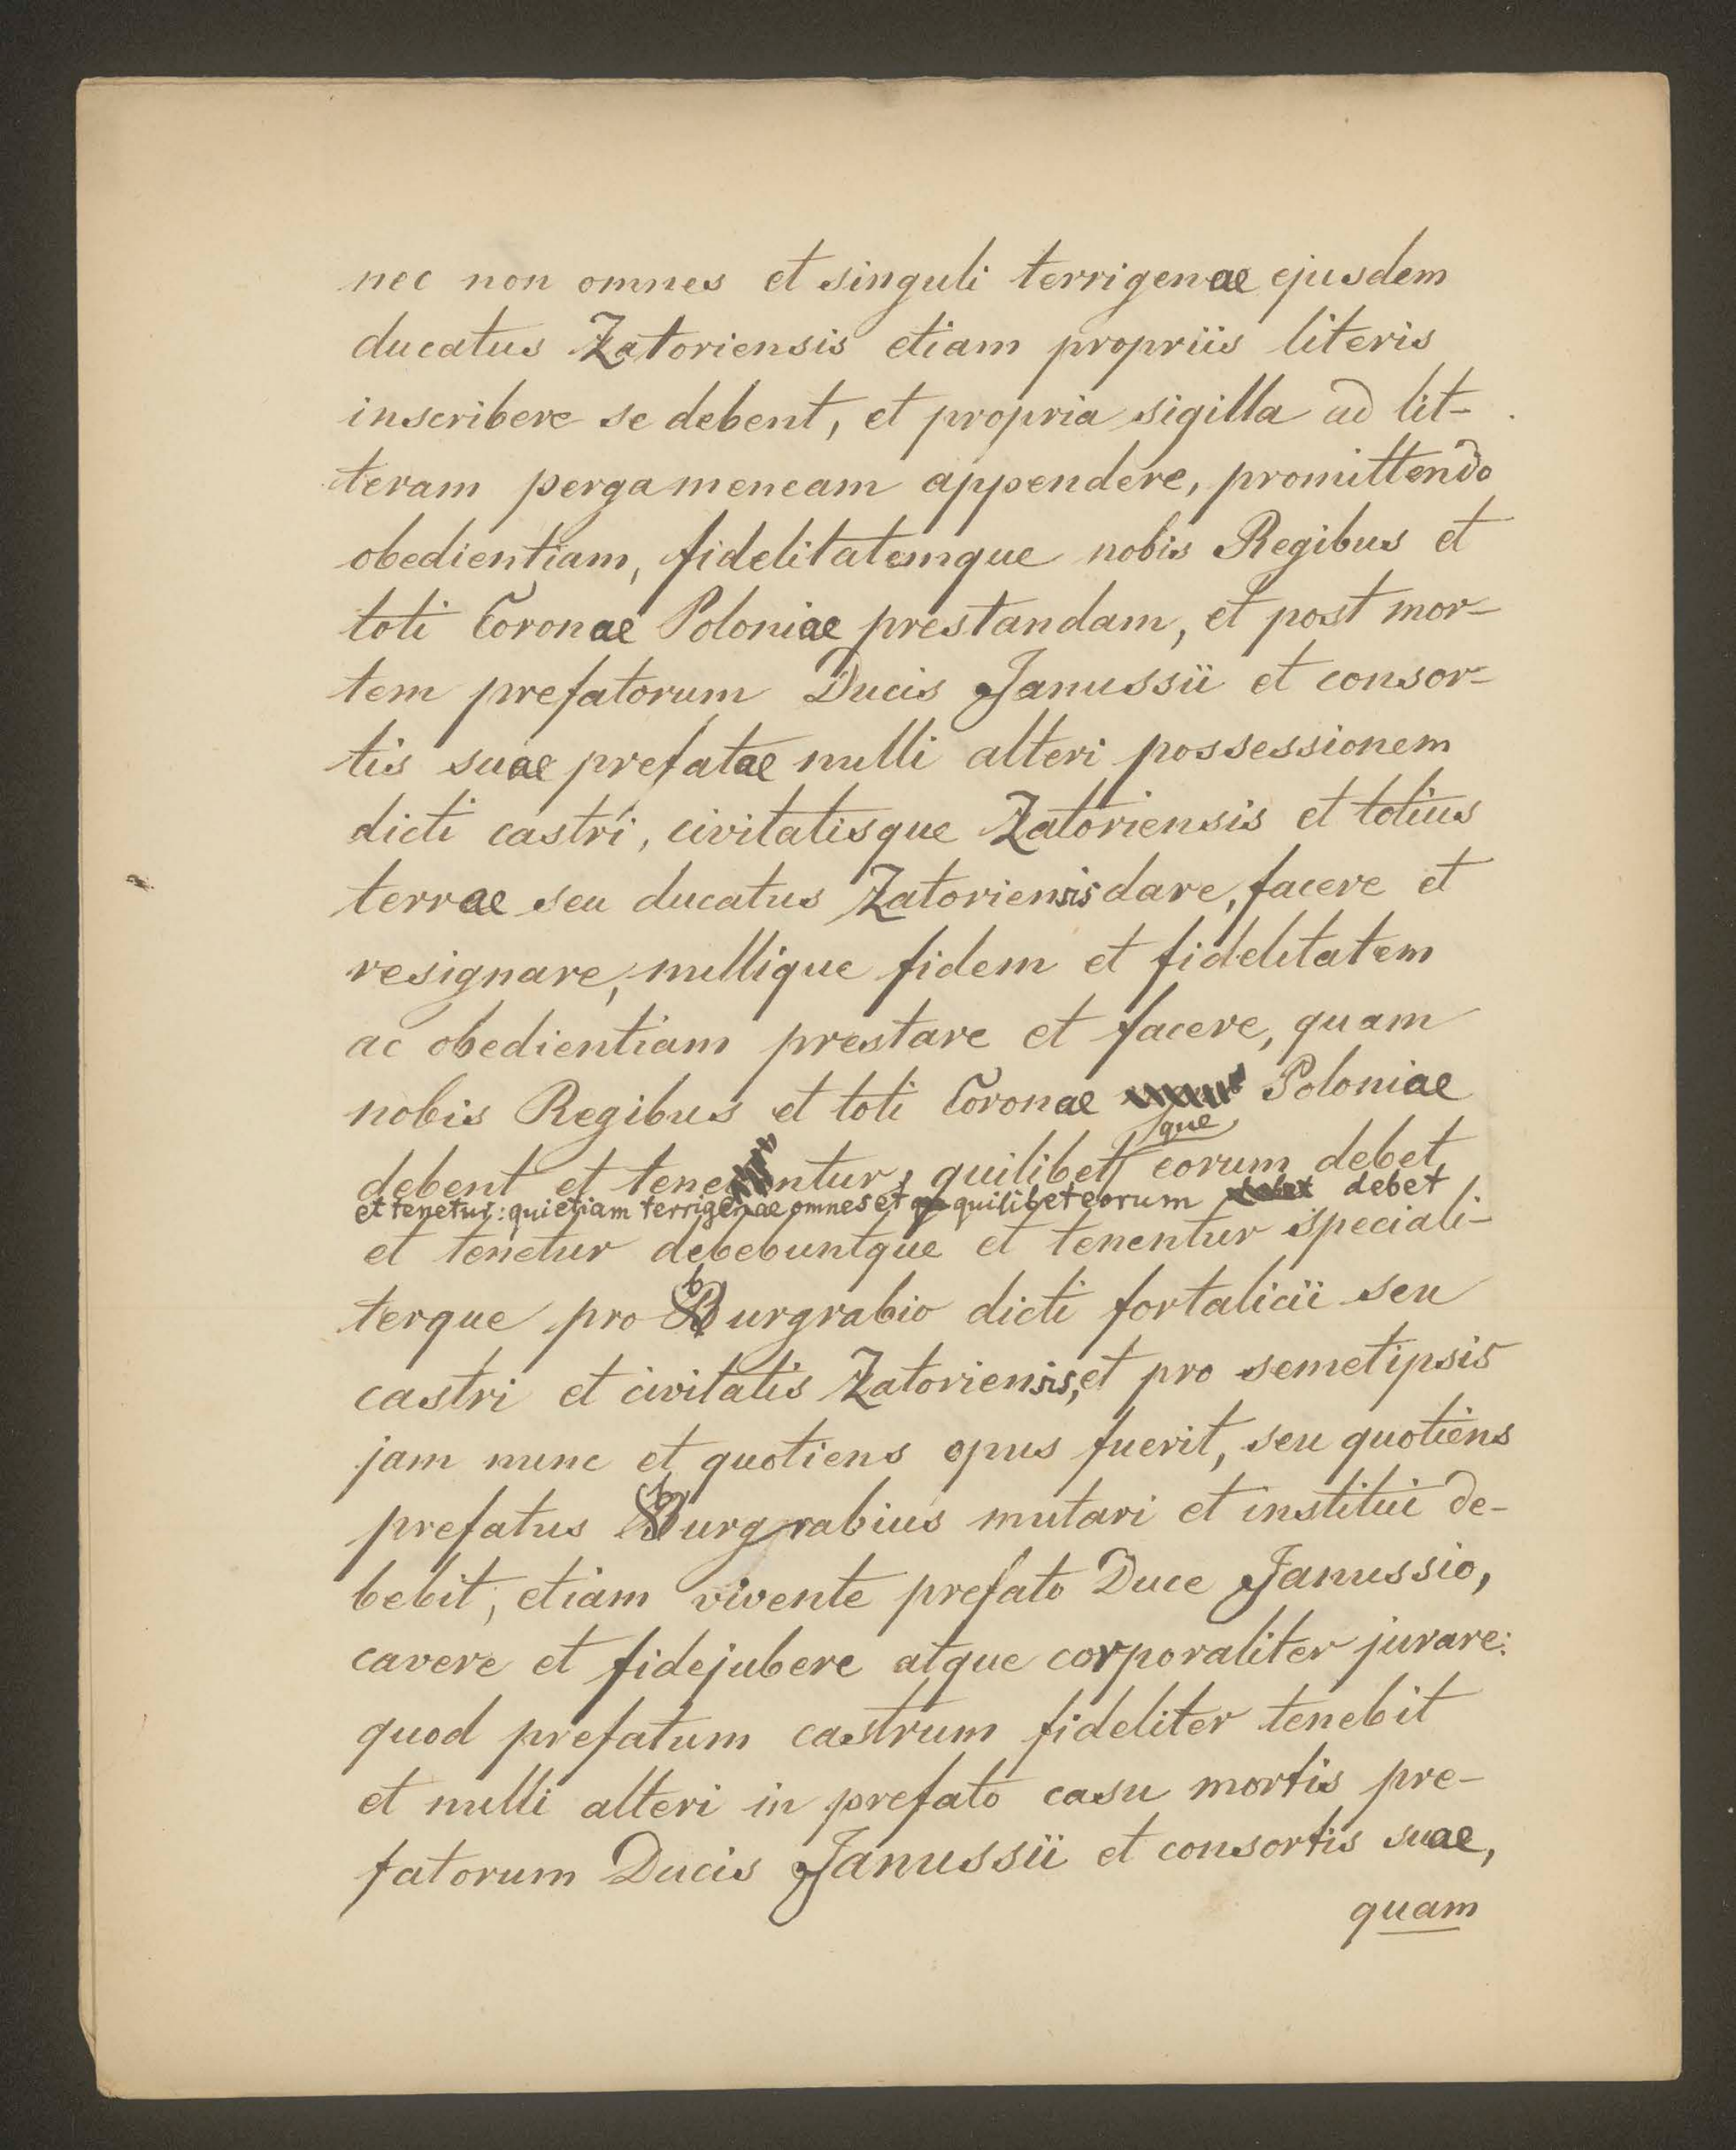 nec non omnes et singuli terrigenae ejusdem
ducatus Zatoriensis etiam propriis literis
inscribere se debent, et propria sigilla ad lit-
teram pergameneam appendere, promittendo
obedientiam, fidelitatemque nobis Regibus et
toti Coronae Poloniae prestandam, et post mor-
tem prefatorum Ducis Janussii et consor-
tis suae prefatae nulli alteri possessionem
dicti castri, civitatisque Zatoriensis et totius
terrae seu ducatus Zatoriensis dare, facere et
resignare, nullique fidem et fidelitatem
ac obedientiam prestare et facere, quam
nobis Regibus et toti Coronae Poloniae
que
debent et tenentur, quilibet eorum debet
et tenetur: qui etiam terrigenae omnes et quilibet eorum debet
et tenetur debebuntque et tenentur speciali-
terque pro burgrabio dicti fortalicii seu
castri et civitatis Zatoriensis, et pro semetipsis
jam nunc et quotiens opus fuerit, seu quotiens
prefatus burgrabius mutari et institui de-
bebit, etiam vivente prefato Duce Janussio,
cavere et fidejubere atque corporaliter jurare:
quod prefatum castrum fideliter tenebit
et nulli alteri in prefato casu mortis pre-
fatorum Ducis Janussii et consortis suae,
quam